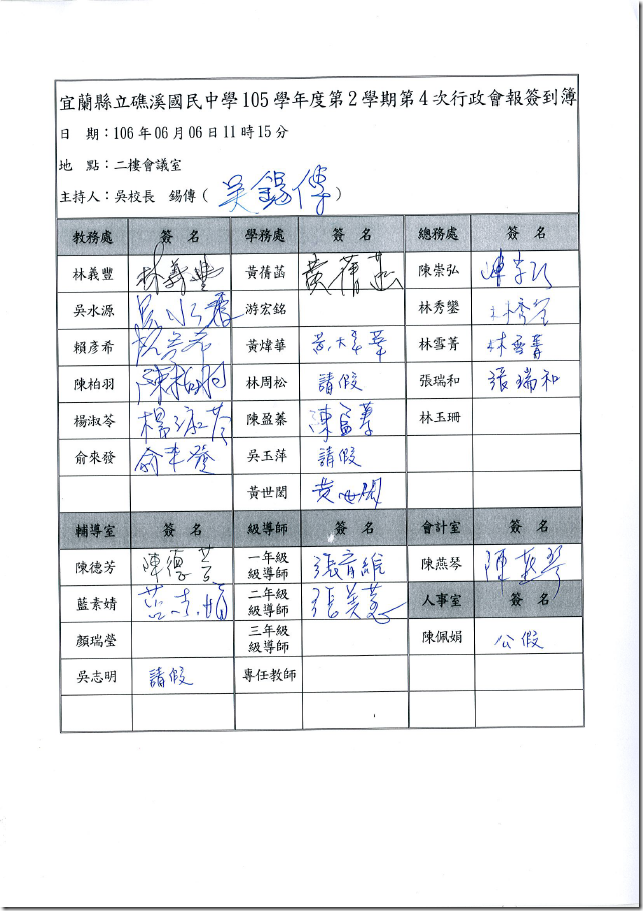 宜蘭縣立礁溪國民中學105學年度第2學期第4次行政會報簽到簿
日　期：106年06月06日11時15分
地　點：二樓會議室
主持人：吳校長　錫傳（吳錫傳）
教務處　簽　名　學務處　簽　名　總務處　簽　名
林義豐　林義豐　黃蒨菡　黃蒨菡　陳崇弘
吳水源　吳水源　游宏銘　林秀鑾
賴彥希　黃煒華　黃煒華　林雪菁　林雪菁
陳柏羽　陳柏羽　林周松　請假　張瑞和　張瑞和
楊淑苓　楊淑苓　陳盈蓁　陳盈蓁　林玉珊
俞來發　俞來發　吳玉萍　請假
黃世閎　黃世閎
輔導室　簽　名　級導師　簽　名　會計室　簽　名
陳德芳　陳德芳　一年級級導師　張育維　陳燕琴　陳燕琴
藍素婧　二年級級導師　人事室　簽　名
顏瑞瑩　三年級級導師　陳佩娟　公假
吳志明　請假　專任教師